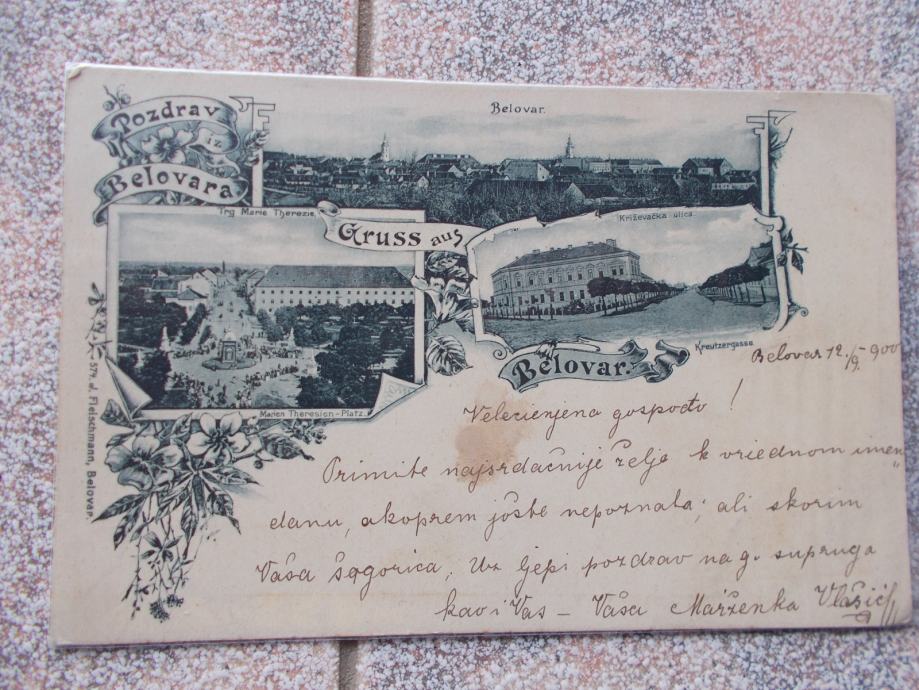 Pozdrav
iz
Belovara
Belovar.
Trg Marie Therezie.
Gruss aus
Križevačka ulica.
Kreutzergasse
Belovar.
Marien Theresien-Platz.
574 J. Fleischmann, Belovar.
Belovar 12./9. 900
Velecienjena gospodo!
Primite najsrdačnije želje k vriednom imen
danu, akoprem jošte nepoznata; ali skorim
Vaša šogorica. Uz ljepi pozdrav na g. supruga
kao i Vas — Vaša Marženka Vlašić